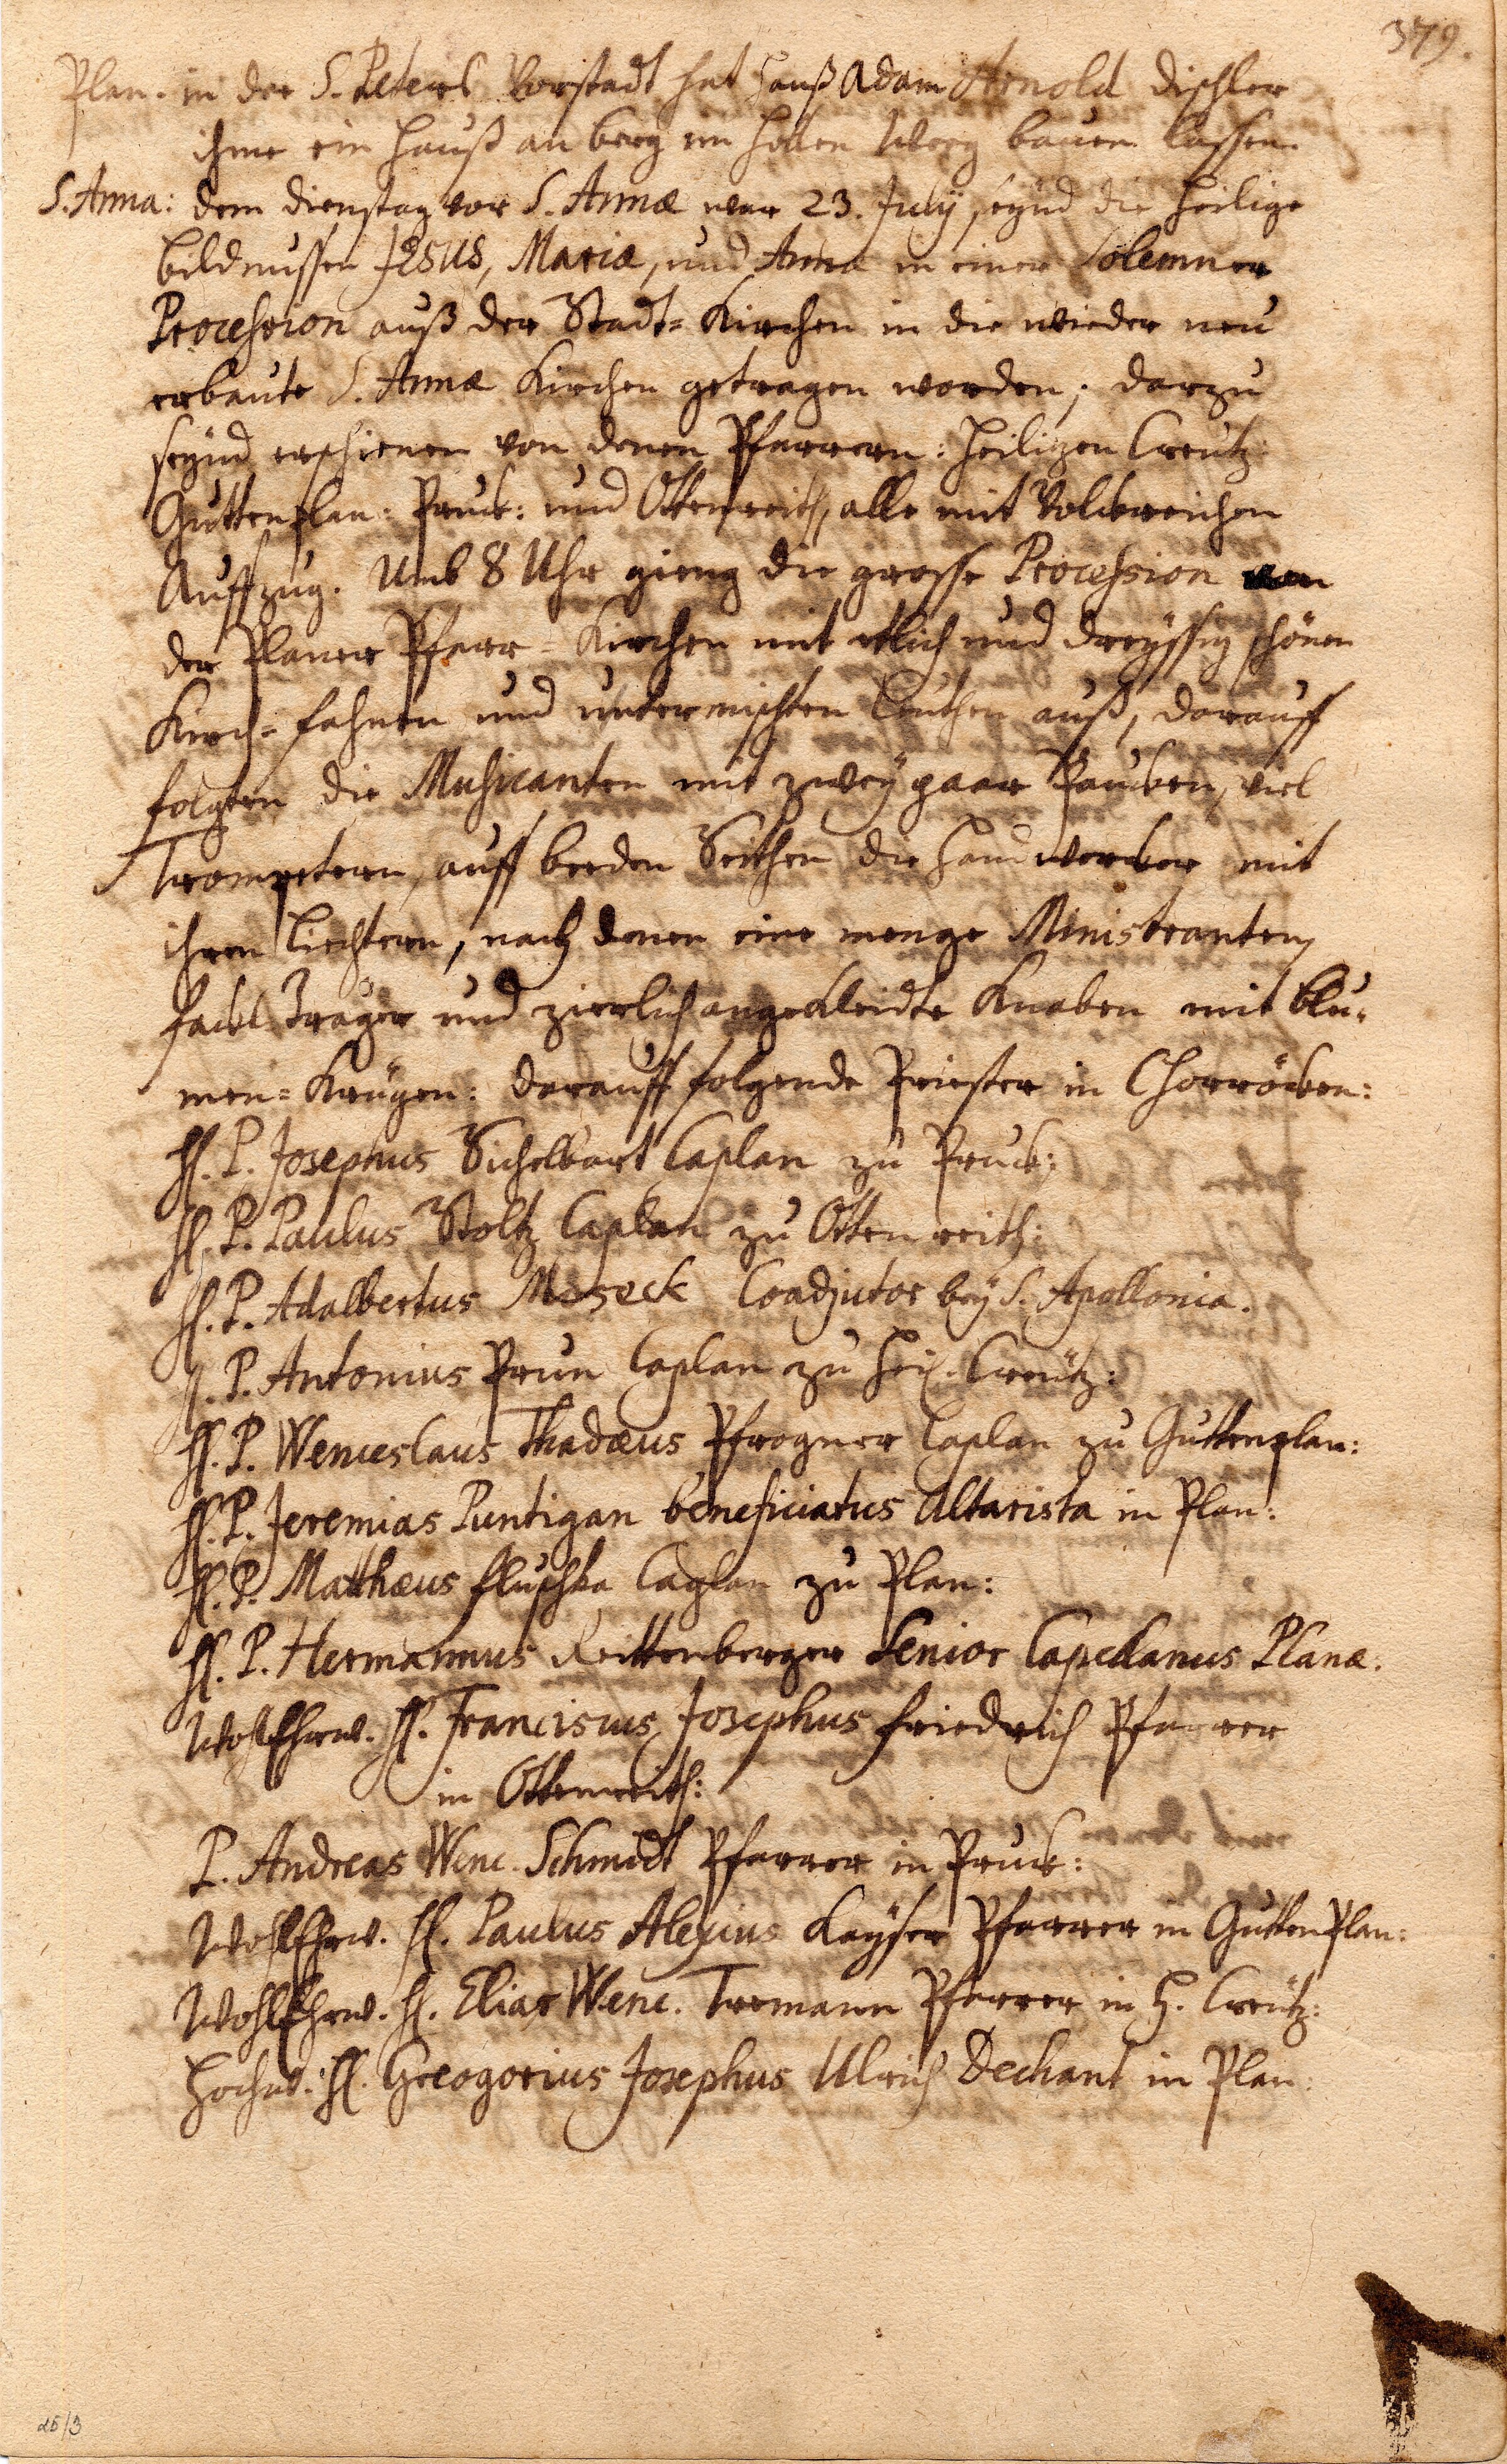 379.
Plan. in der S. Peters Vorstadt hat Hanß Adam Arnold dischler
ihme ein Hauß an berg im hollen Weeg bauen lassen.
S. Anna: dem dienstag vor S. Annæ war 23. July, seynd die heilige
bildnussen JESUS, Mariæ, und Anna in einer Solemner
Procession auß der Stadt= Kirchen in die wieder neu
erbaute S. Annæ Kirchen getragen worden; darzu
seynd erschienen von denen Pfarrern: Heiligen Creutz:
Guttenplan: Pruck: und Ottenreith, alle mit Volckreichen
Auffzug. Umb 8 Uhr gieng die grosse Procession von
der Planer Pfarr= Kirchen mit etlich und dreyssig schönen
Kirch= fahnen und untermischten Leuthen auß, darauff
folgten die Musicanten mit zwey paar Paucken, viel
Trompetern, auff beeden Seithen die Handwercker mit
ihren Liechtern, nach denen eine menge Ministranten,
fackl Träger und zierlich angekleidte Knaben mit blu=
men= Krügen: darauff folgende Priester in Chorröcken:
H. P. Josephus Sichelbart Caplan zu Pruck:
H. P. Paulus Stoltz Caplan zu Ottenreith:
H. P. Adalbertus Moseck Coadjutor bey S. Apollonia.
H. P. Antonius Prun Caplan zu Heil. Creütz:
H. P. Wenceslaus Thadæus Pfrogner Caplan zu Guttenplan:
H. P. Jeremias Puntigan beneficiatus Altarista in Plan:
H. P. Matthæus Fluschka Caplan zu Plan:
H. P. Hermannus Reittenberger Senior Capellanus Planæ.
WohlEhrw. H. Franciscus Josephus Friedrich Pfarrer
in Ottenreith:
P. Andreas Wenc. Schmidt Pfarrer in Pruck:
WohlEhrw. H. Paulus Alexius Kayser Pfarrer in GuttenPlan:
WohlEhrw. H. Elias Wenc. Tremann Pfarrer in H. Creütz:
Hochw: H. Greogorius Josephus Ulrich Dechant in Plan:
25/3